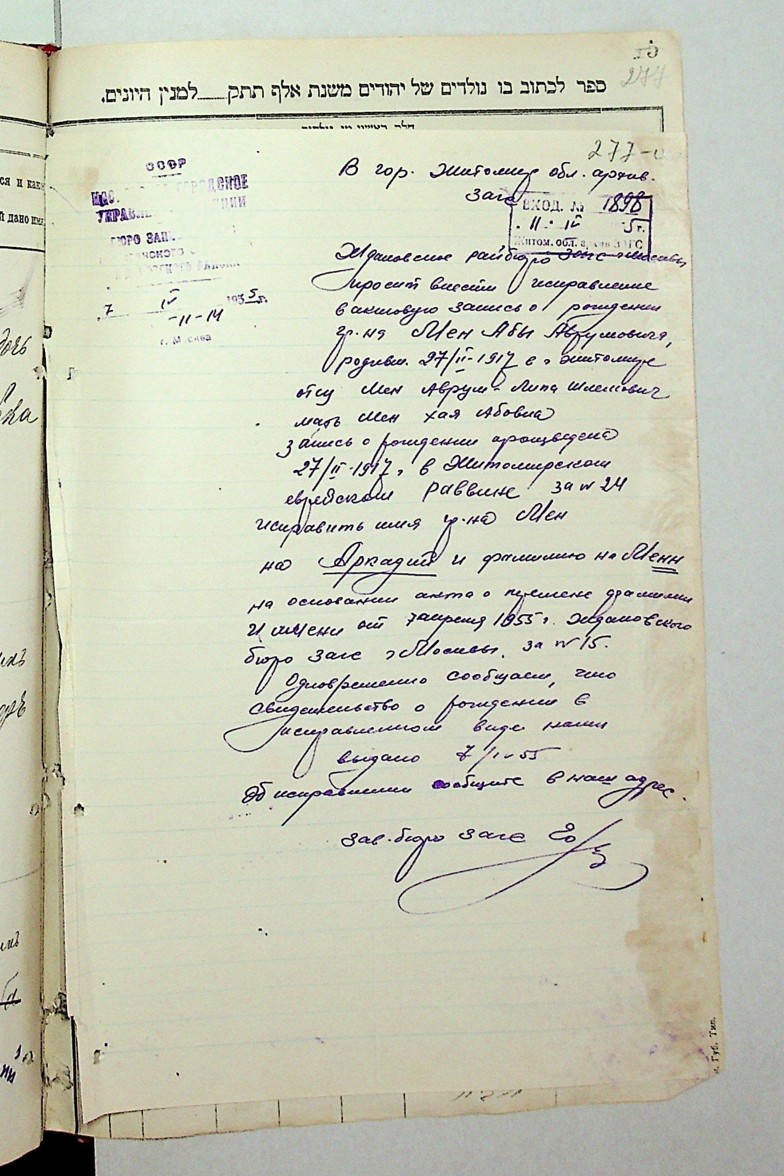 ספר לכתוב בו נולדים של יהודים משנת אלף תתק___למנין היונים.
277
СССР
УПРАВЛ
БЮРО ЗАП
7 IV 1955г.
-11-14
г. Москва
В гор. Житомир обл. архив.
Загс
ВХОД. № 1898
11 IV 5г.
Житом. обл. архив ЗАГС
Ждановское райбюро загс Москвы
просит внести исправление
в актовую запись о рождении
гр-на Мен Абы Аврумовича,
родивш. 27/II-1917 в г Житомире
отец Мен Аврум-Липа Шлемович
мать Мен Хая Абовна
Запись о рождении произведена
27/II-1917г в Житомирском
еврейском раввине за № 24
исправить имя гр-на Мен
на Аркадий и фамилию на Менн
на основании акта о перемене фамилии
и имени от 7 апреля 1955 г. Ждановского
бюро загс г Москвы, за № 15.
Одновременно сообщаем, что
свидетельство о рождении в
исправленном виде нами
выдано 7/IV-55
Об исправлении сообщите в наш адрес.
Зав. бюро загс
Губ. Тип.